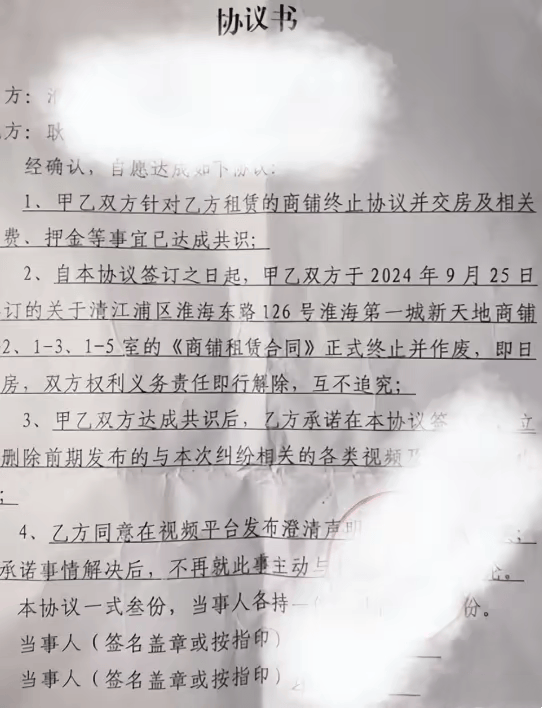 协议书
方：
方：耿
经确认，自愿达成如下协议：
1、甲乙双方针对乙方租赁的商铺终止协议并交房及相关
费、押金等事宜已达成共识；
2、自本协议签订之日起，甲乙双方于2024年9月25日
订的关于清江浦区淮海东路126号淮海第一城新天地商铺
2、1-3、1-5室的《商铺租赁合同》正式终止并作废，即日
房，双方权利义务责任即行解除，互不追究；
3、甲乙双方达成共识后，乙方承诺在本协议签 立
删除前期发布的与本次纠纷相关的各类视频及
；
4、乙方同意在视频平台发布澄清声明 ；
承诺事情解决后，不再就此事主动与 论。
本协议一式叁份，当事人各持一 份。
当事人（签名盖章或按指印）
当事人（签名盖章或按指印）